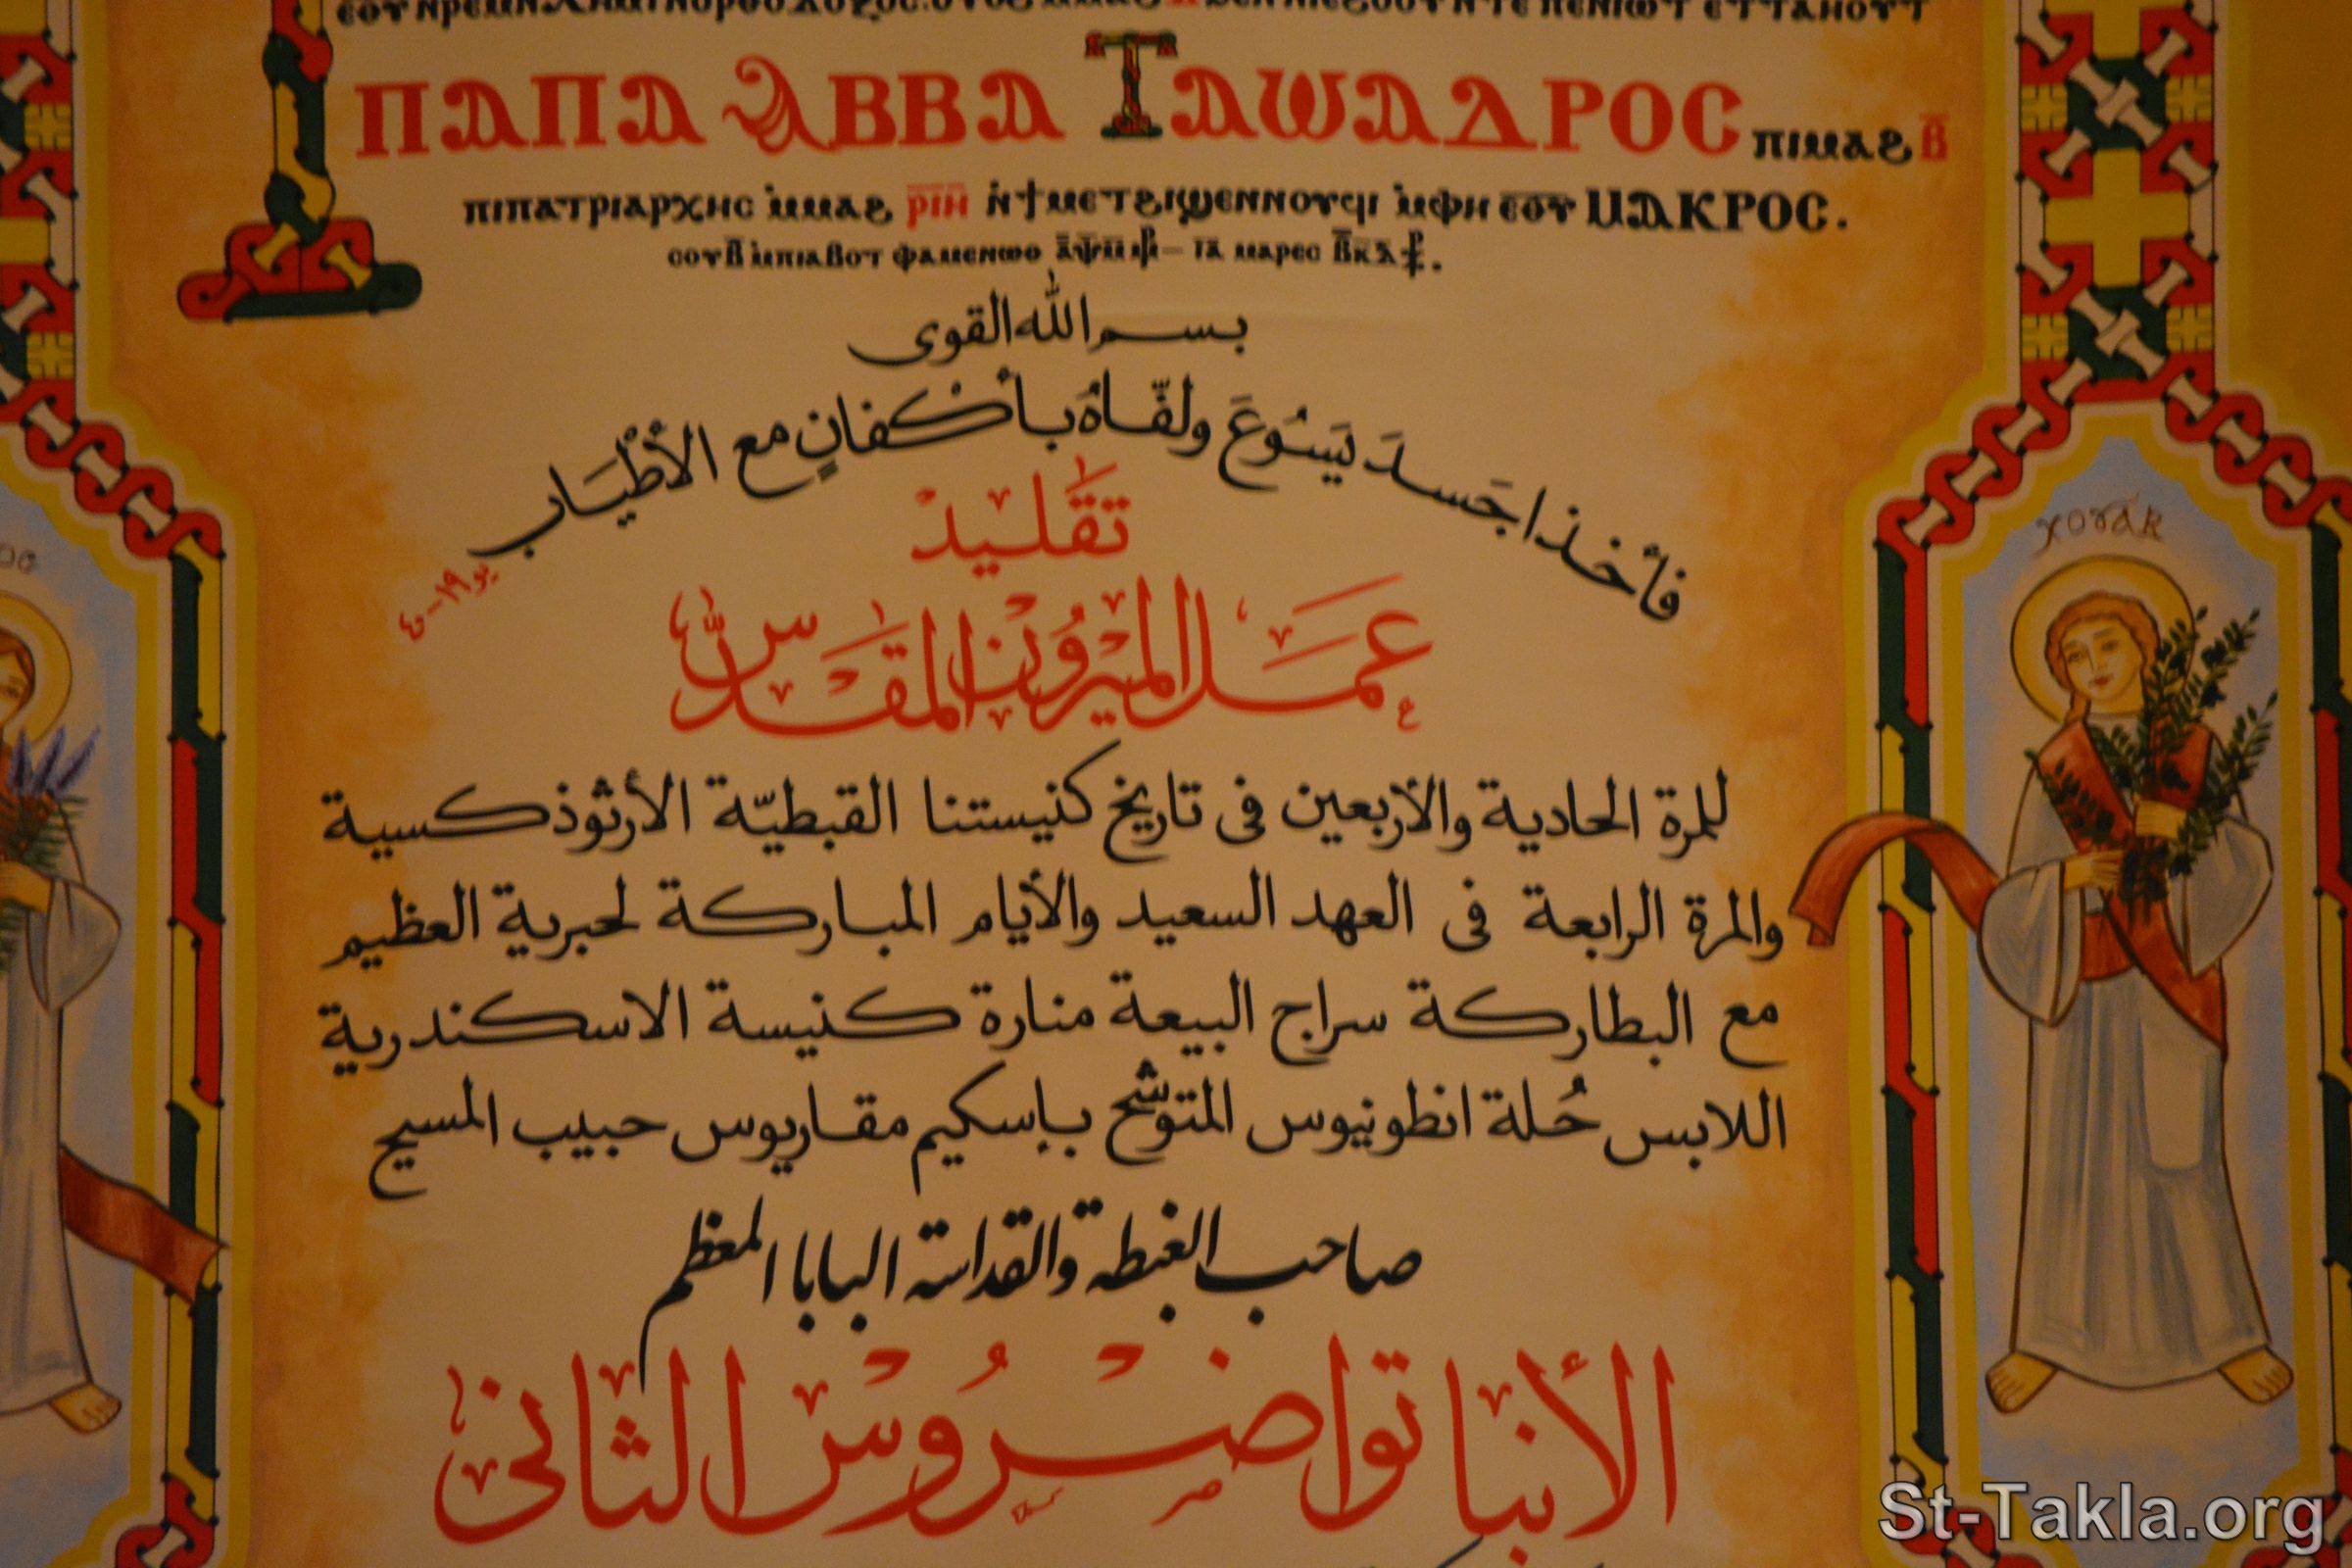 ⲠⲀⲠⲀ ⲀⲂⲂⲀ ⲦⲀⲰⲀⲆⲢⲞⲤ ⲡⲓⲙⲁϩ ⲃ̅
ⲡⲓⲡⲁⲧⲣⲓⲁⲣⲭⲏⲥ ⲙ̀ⲙⲁϩ ⲣ̅ⲓ̅ⲏ̅ ⲛ̀ϯⲙⲉⲧϩⲓϣⲉⲛⲛⲟⲩϥⲓ ⲙ̀ⲫⲏ ⲉ̅ⲑ̅ⲩ̅ ⲘⲀⲔⲢⲞⲤ.
ⲥⲟⲩⲃ̅ ⲙ̀ⲡⲓⲁⲃⲟⲧ ⲫⲁⲙⲉⲛⲱⲑ ⲓ̅ⲁ̅ ⲙⲁⲣⲉⲥ
بسم الله القوى
فأخذا جَسدَ يَسُوعَ ولفّاهُ بأكفانٍ مع الأطْيَاب
يو ١٩-٤٠
تقليد
عمل الميرون المقدس
للمرة الحادية والأربعين فى تاريخ كنيستنا القبطيّة الأرثوذكسية
والمرة الرابعة فى العهد السعيد والأيام المباركة لحبرية العظيم
مع البطاركة سراج البيعة منارة كنيسة الاسكندرية
اللابس حُلة انطونيوس المتوشح بإسكيم مقاريوس حبيب المسيح
صاحب الغبطة والقداسة البابا المعظم
الأنبا تواضروس الثانى
ⲭⲟⲓⲁⲕ
St-Takla.org